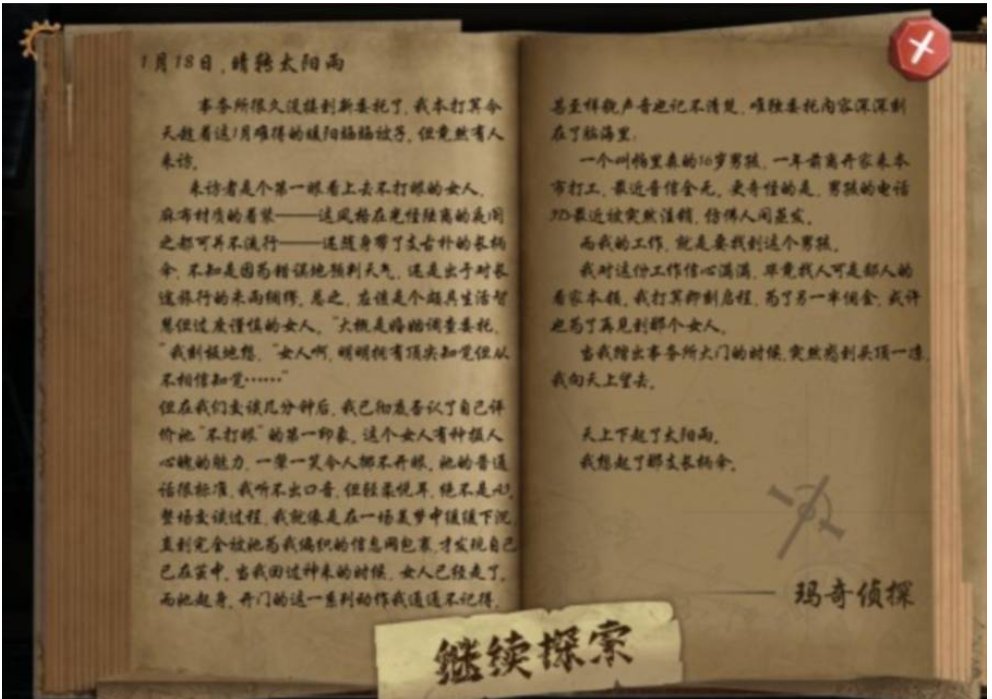 1月18日，晴转太阳雨
事务所很久没接到新委托了，我本打算今
天趁着这1月难得的暖阳晒晒被子，但竟然有人
来访。
来访者是个第一眼看上去不打眼的女人，
麻布材质的着装——这风格在光怪陆离的夜间
之都可并不流行——还随身带了支古朴的长柄
伞，不知是因为错误地预判天气，还是出于对长
途旅行的未雨绸缪。总之，应该是个颇具生活智
慧但过度谨慎的女人。“大概是婚姻调查委托，
”我刻板地想，“女人啊，明明拥有顶尖知觉但从
不相信知觉……”
但在我们交谈几分钟后，我已彻底否认了自己评
价她“不打眼”的第一印象。这个女人有种摄人
心魄的魅力，一颦一笑令人挪不开眼。她的普通
话很标准，我听不出口音，但轻柔悦耳，绝不是
整场交谈过程，我就像是在一场美梦中缓缓下沉
直到完全被她为我编织的信息网包裹，才发现自己
已在茧中。当我回过神来的时候，女人已经走了，
而她起身、开门的这一系列动作我通通不记得，
甚至样貌声音也记不清楚，唯独委托内容深深刻
在了脑海里：
一个叫杨里真的16岁男孩，一年前离开家来本
市打工，最近音信全无。更奇怪的是，男孩的电话
最近被突然注销，仿佛人间蒸发。
而我的工作，就是要找到这个男孩。
我对这份工作信心满满，毕竟找人可是鄙人的
看家本领。我打算即刻启程，为了另一半佣金，或许
也为了再见到那个女人。
当我踏出事务所大门的时候，突然感到头顶一凉，
我向天上望去。
天上下起了太阳雨。
我想起了那支长柄伞。
——玛奇侦探
继续探索